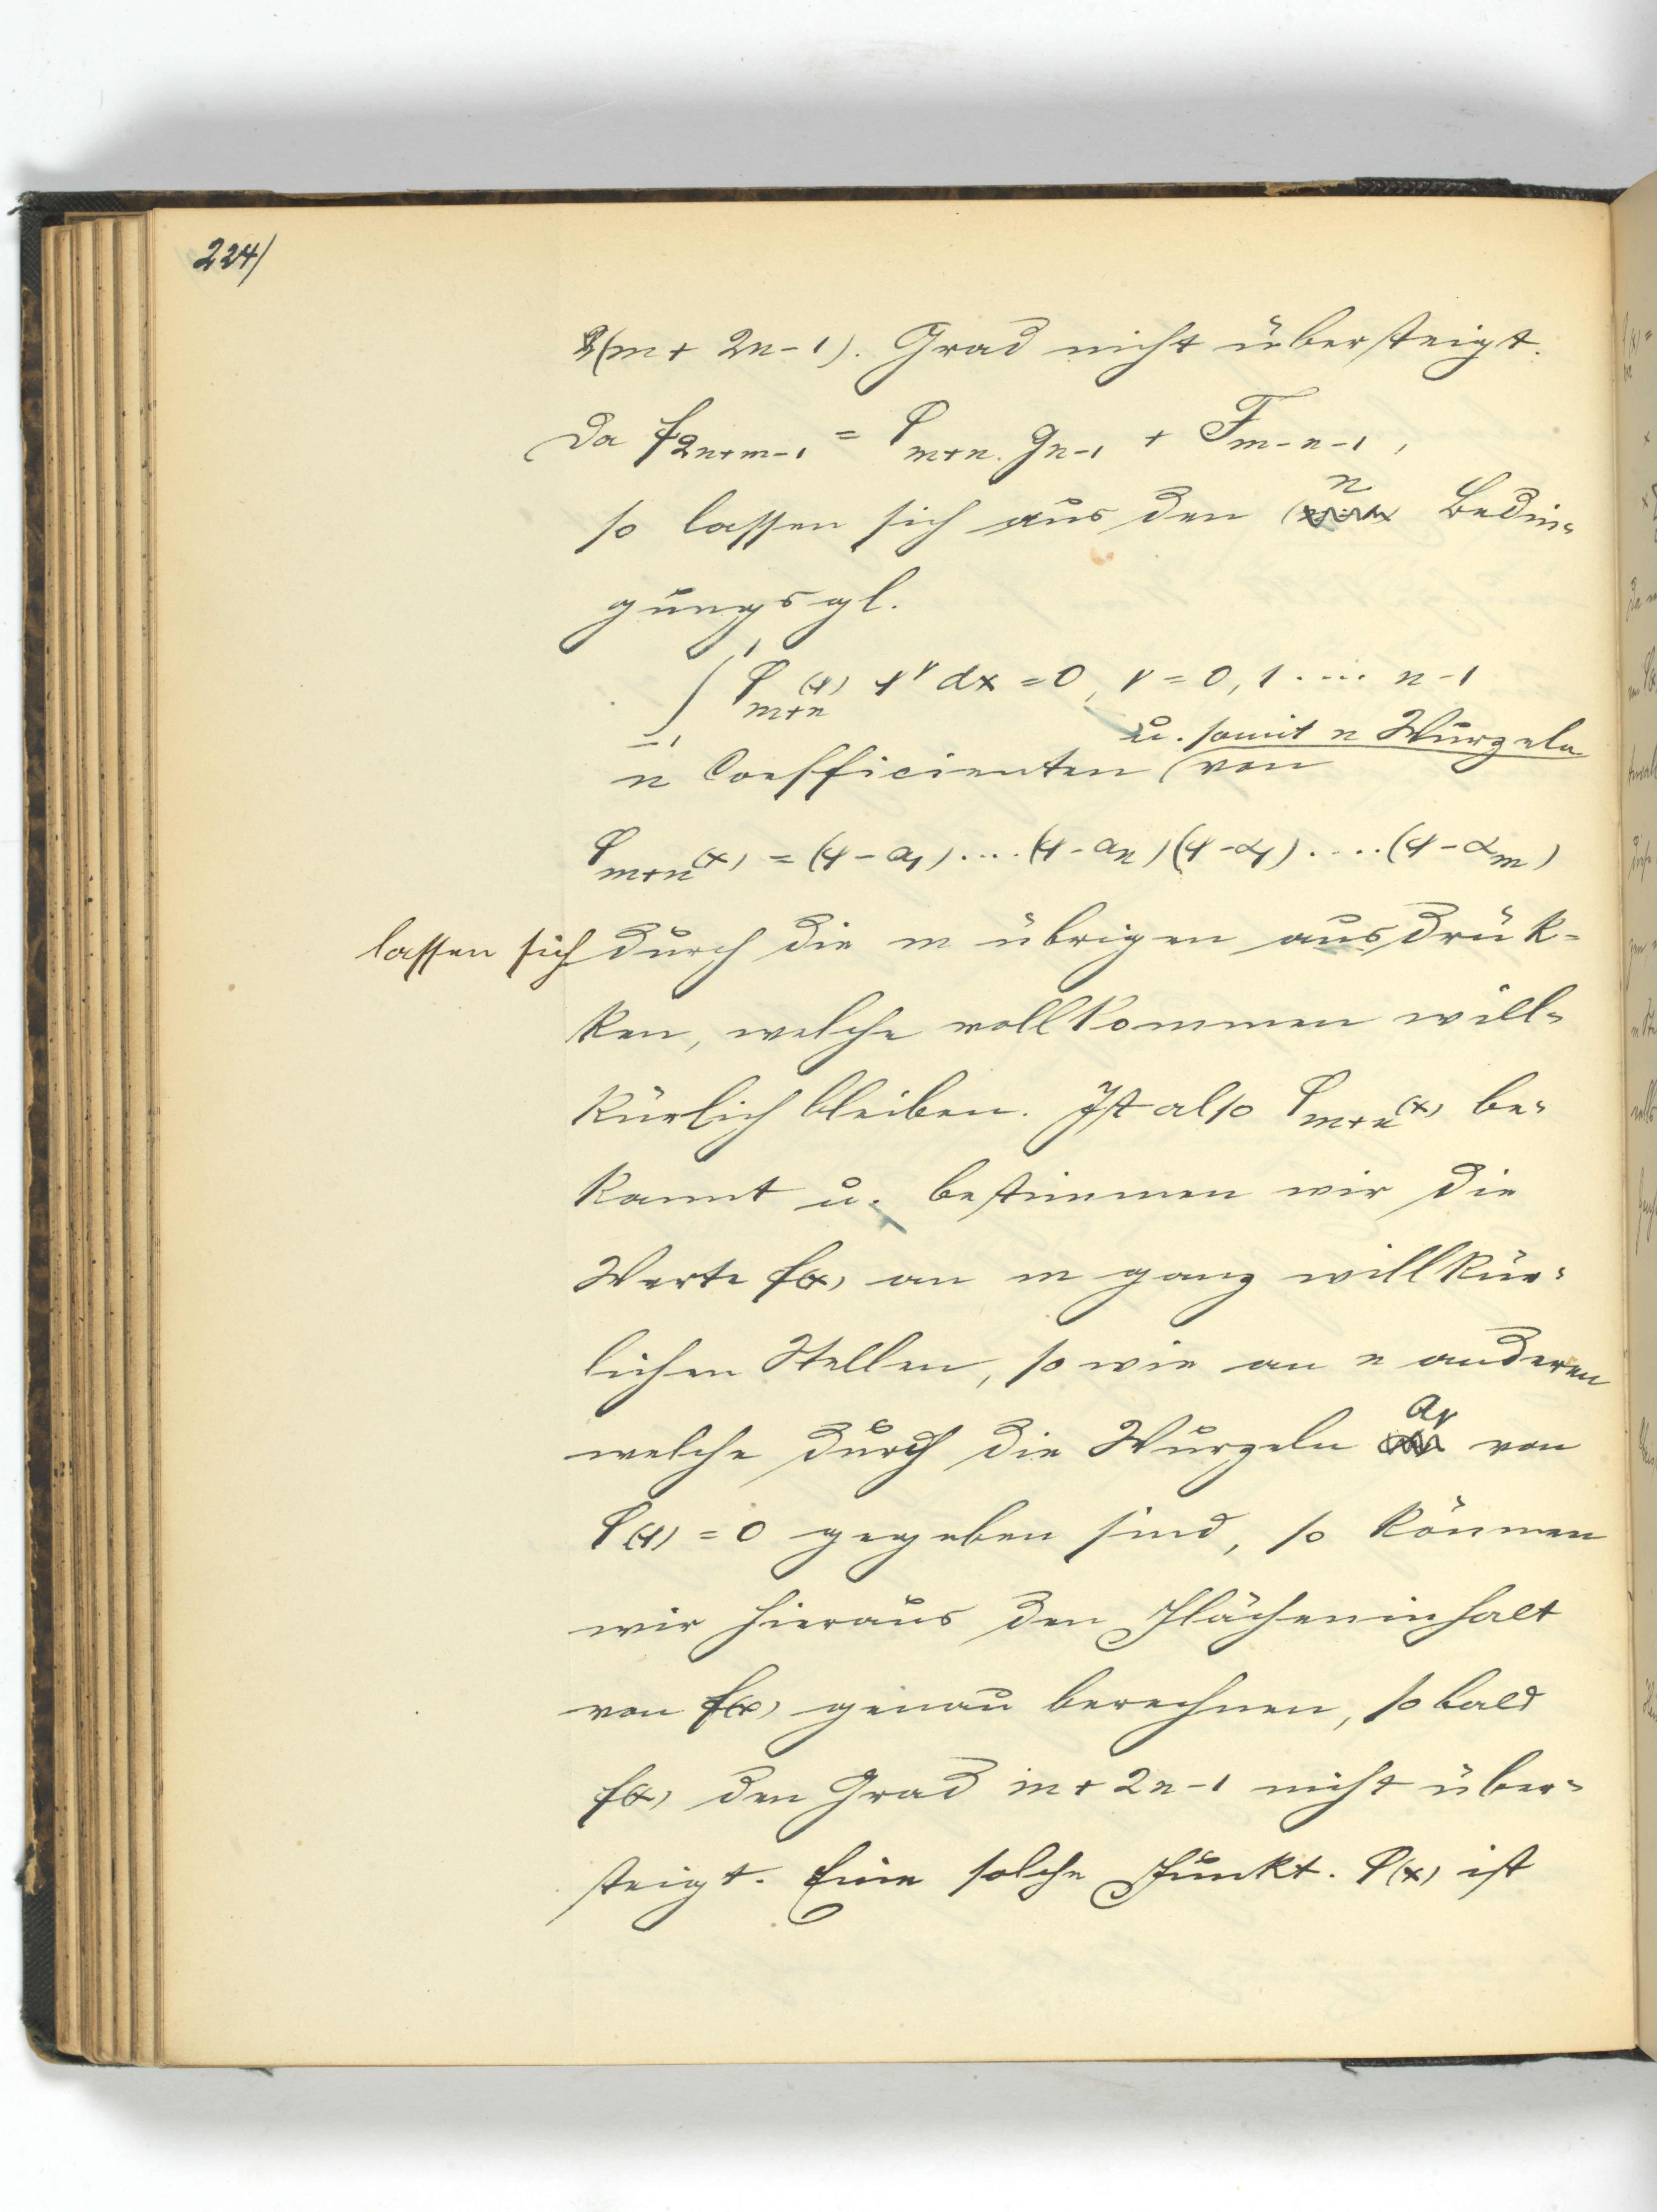 224/
(m + 2n-1). Grad nicht übersteigt.
Da f2n+m-1 = φm+n. gn-1 + Fm-n-1,
so lassen sich aus den n Bedin-
gungsgl.
∫₋₁¹ φm+n(x) x^ν dx = 0, ν = 0, 1 .... n-1
u. somit n Wurzeln
n Coefficienten (von
φm+n(x) = (x-a1)....(x-an)(x-α1)....(x-αm)
lassen sich durch die m übrigen ausdrük-
ken, welche vollkommen will-
kürlich bleiben. Ist also φm+n(x) be-
kannt u. bestimmen wir die
Werte f(x) an m ganz willkür-
lichen Stellen, so wie an n anderen
welche durch die Wurzeln aν von
φ(x) = 0 gegeben sind, so können
wir hieraus den Flächeninhalt
von f(x) genau berechnen, sobald
f(x) den Grad m+2n-1 nicht über-
steigt. Eine solche Funkt. φ(x) ist